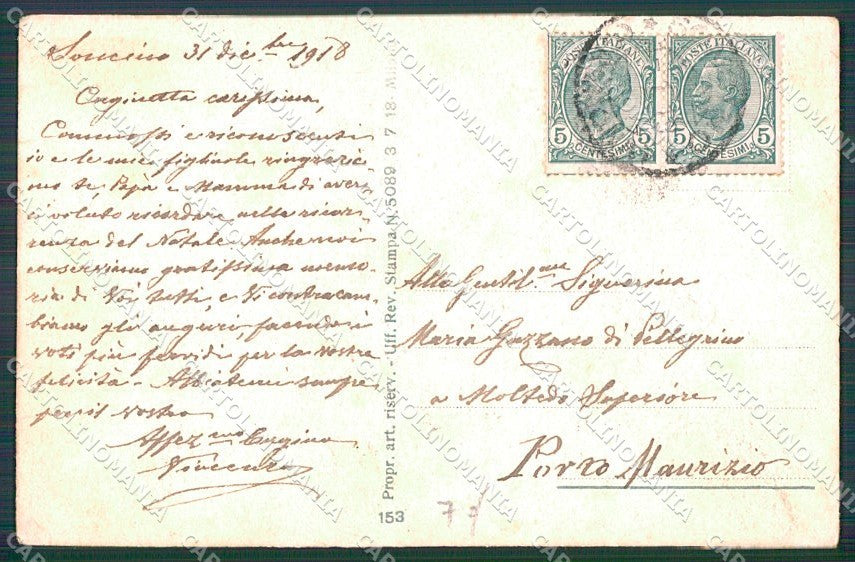 Soncino 31 dic.bre 1918
Cuginetta carissima,
Commossi e riconoscenti
io e le mie figliuole ringrazia-
mo te, Papà e Mamma di aver-
ci voluto ricordare nella ricor-
renza del Natale. Anche noi
conserviamo gratissima memo-
ria di Voi tutti, e Vi contracam-
biamo gli auguri, facendo i
voti più fervidi per la vostra
felicità - Abbiatemi sempre
pel vostro
Affez.mo Cugino
Vincenzo
Propr. art. riserv. - Uff. Rev. Stampa N. 5089 3 7 18
153
POSTE ITALIANE
5 CENTESIMI 5
POSTE ITALIANE
5 CENTESIMI 5
Alla Gentil.me Signorina
Maria Gazzano di Pellegrino
a Moltedo Superiore
Porto Maurizio
CARTOLINOMANIA